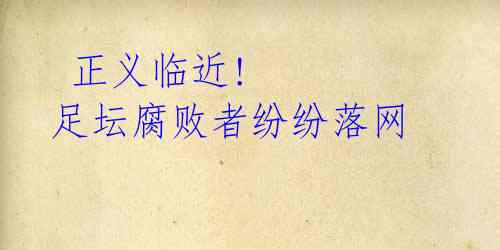 正义临近!
足坛腐败者纷纷落网